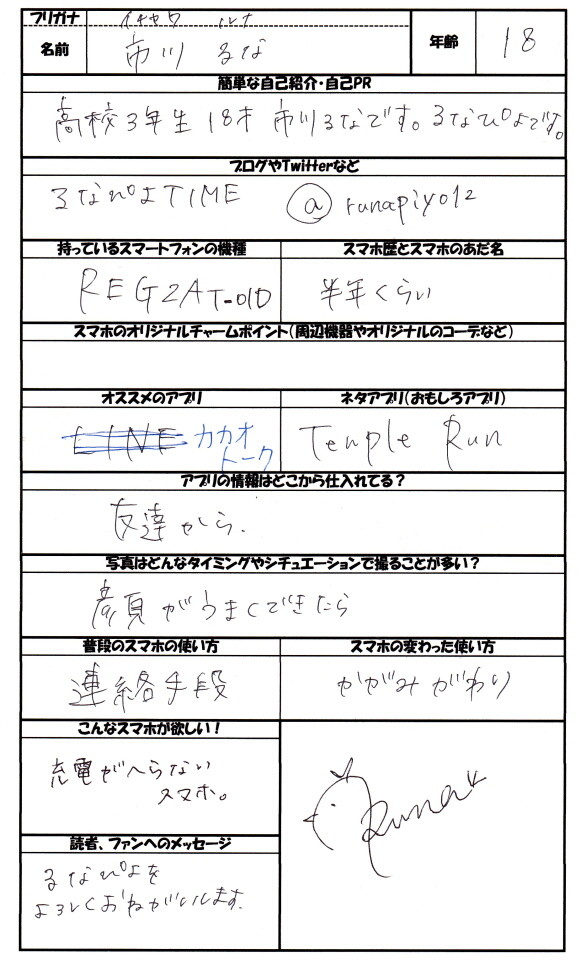 フリガナ イチカワ ルナ
名前 市川 るな 年齢 18
簡単な自己紹介・自己PR
高校3年生 18才 市川るなです。るなぴよです。
ブログやTwitterなど
るなぴよTIME @runapiyo12
持っているスマートフォンの機種 スマホ歴とスマホのあだ名
REGZA T-01D 半年くらい
スマホのオリジナルチャームポイント(周辺機器やオリジナルのコーデなど)
オススメのアプリ ネタアプリ(おもしろアプリ)
LINE カカオ Temple Run
トーク
アプリの情報はどこから仕入れてる?
友達から.
写真はどんなタイミングやシチュエーションで撮ることが多い?
彦頁がうまくできたら
普段のスマホの使い方 スマホの変わった使い方
連絡手段 かがみがわり
こんなスマホが欲しい!
充電がへらない
スマホ。
Runa
読者、ファンへのメッセージ
るなぴよを
よろしくおねがいします